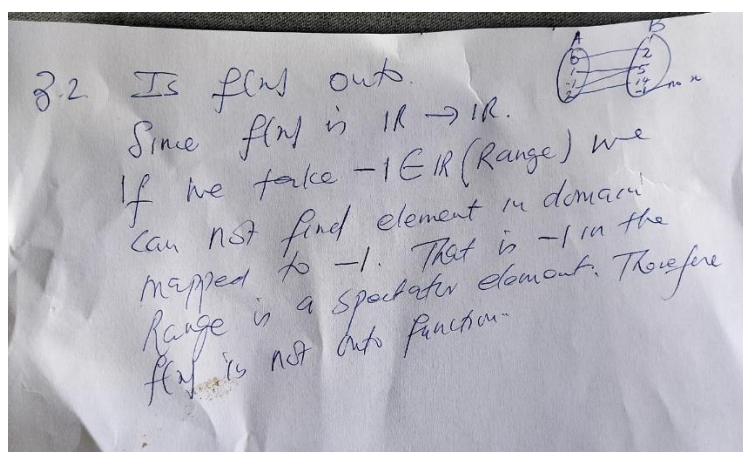 A B
6 2
1 5
-1 14
2 -1 no x
3.2 Is f(x) onto.
Since f(x) is IR → IR.
If we take -1 ∈ IR (Range) we
can not find element in domain
mapped to -1. That is -1 in the
Range is a spectator element. Therefore
f(x) is not onto function.